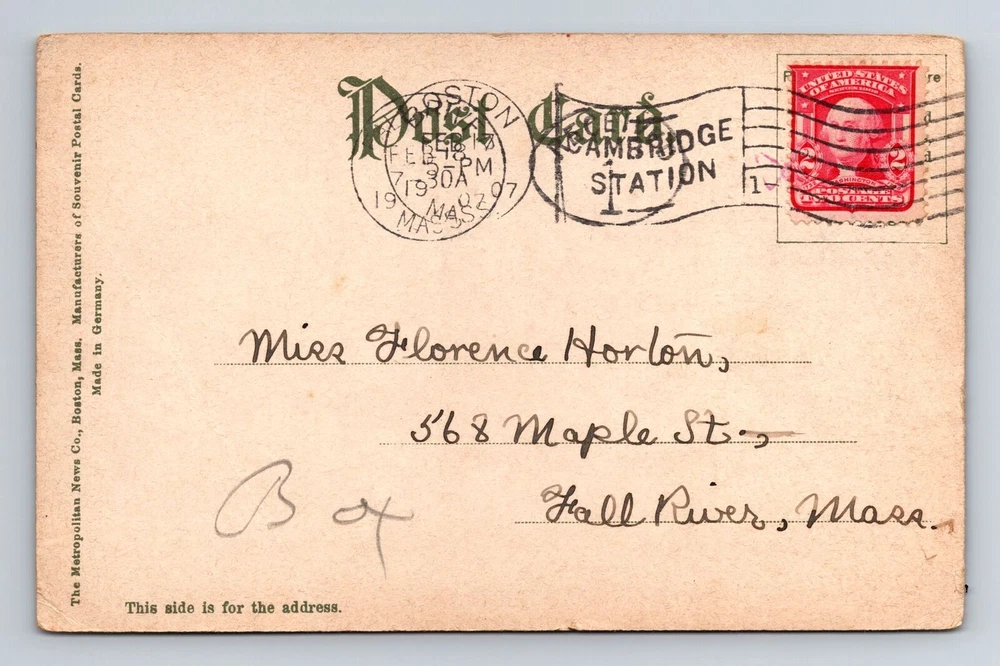 Post Card
BOSTON
FEB 17
FEB 18
1907
MASS.
CAMBRIDGE
STATION
1
UNITED STATES
OF AMERICA
2 2
WASHINGTON
POSTAGE
TWO CENTS
re
Miss Florence Horton,
568 Maple St.,
Fall River, Mass.
Box
This side is for the address.
The Metropolitan News Co., Boston, Mass. Manufacturers of Souvenir Postal Cards.
Made in Germany.